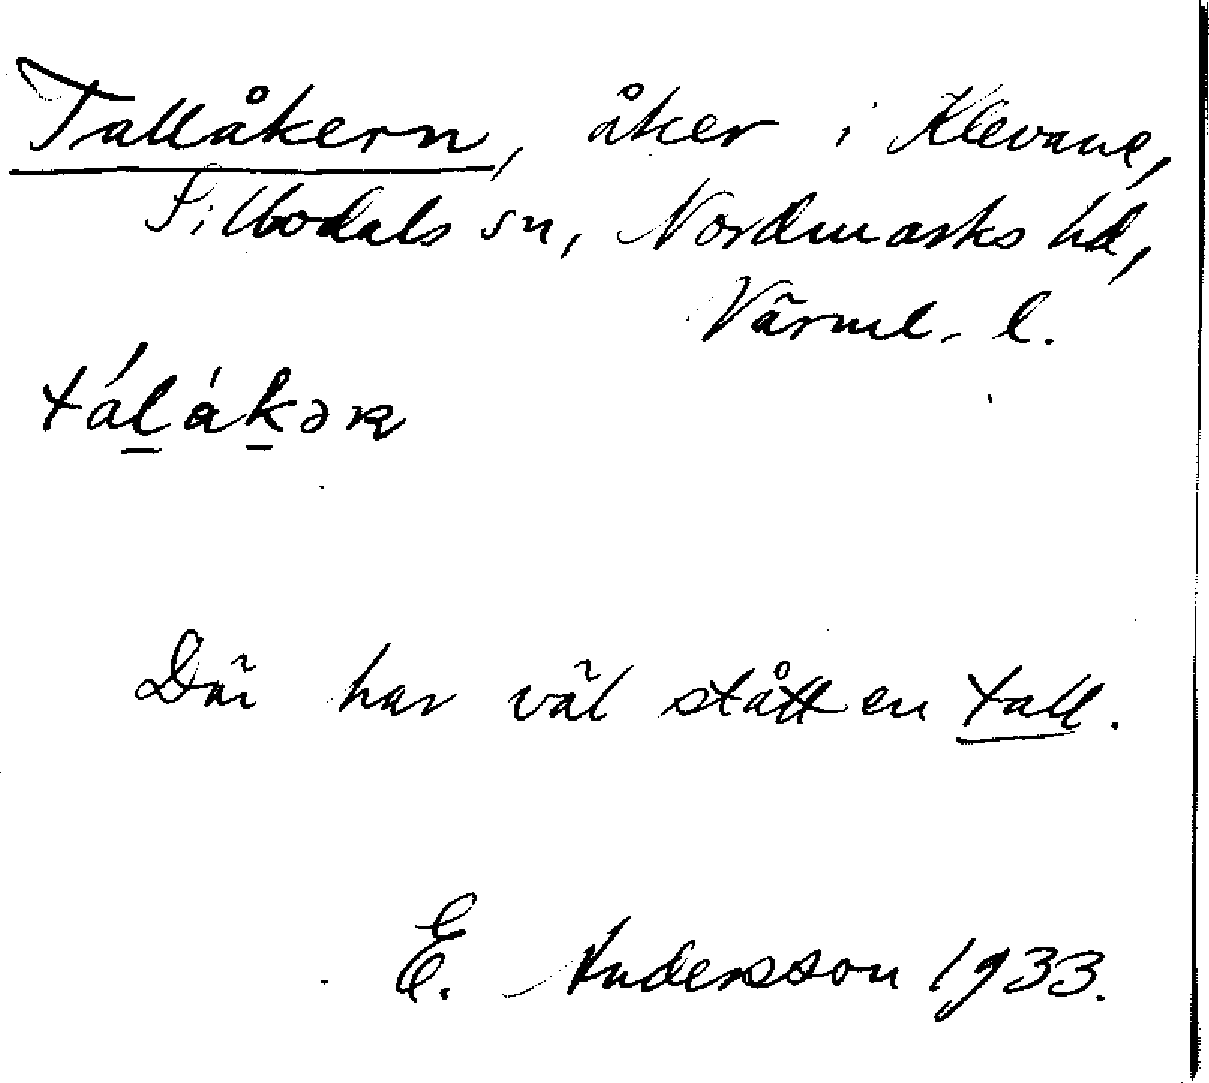 Tallåkern, åker i Klevane,
Silbodals sn, Nordmarks hd,
Värml. l.
tálåkər
Där har väl stått en tall.
E. Andersson 1933.